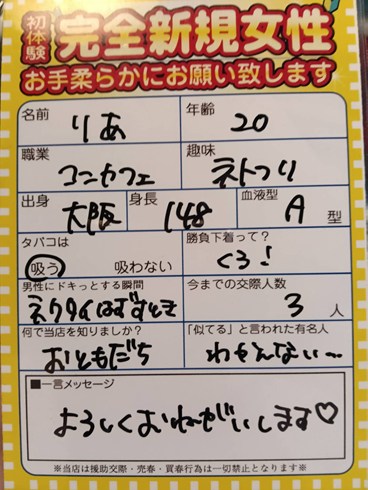 初体験 完全新規女性
お手柔らかにお願い致します
名前 りあ 年齢 20
職業 コンカフェ 趣味 ネトフリ
出身 大阪 身長 148 血液型 A 型
タバコは 勝負下着って?
吸う 吸わない くろ!
男性にドキっとする瞬間 今までの交際人数
ネクタイはずすとき 3 人
何で当店を知りましたか? 「似てる」と言われた有名人
おともだち わかんない〜
■一言メッセージ
よろしくおねがいします♡
※当店は援助交際・売春・買春行為は一切禁止となります※